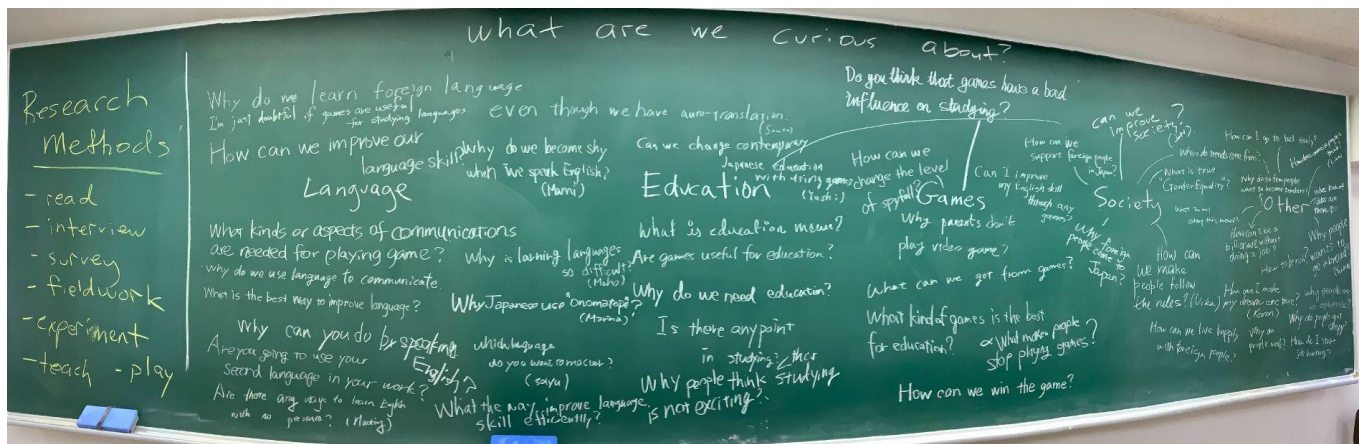 what are we curious about?
Research
Methods
- read
- interview
- survey
- fieldwork
- experiment
- teach - play
Why do we learn foreign language
even though we have auto-translation.
I'm just doubtful if games are useful
for studying languages
How can we improve our
language skill?
Why do we become shy
when we speak English?
(Mami)
Language
What kinds or aspects of communications
are needed for playing game?
Why do we use language to communicate
What is the best way to improve language?
Why is larning languages
so difficult?
(Maho)
Why Japanese use "Onomatope"?
(Marina)
Why can you do by speaking
English?
Are you going to use your
second language in your work?
Are there any ways to learn English
with no pressure?
which language
do you want to
What the way improve language
skill efficiently?
Can we change contemporary
Japanese education
with using games
(Yoshi)
Education
what is education mean?
Are games useful for education?
Why do we need education?
Is there any point
in studying?
Why people think studying
is not exciting?
Do you think that games have a bad
influence on studying?
How can we
change the level
of spyfall?
Games
Can I improve
my English skill
through any
games?
Why parents don't
play video game?
What can we get from games?
What kind of games is the best
for education?
What makes people
stop playing games?
How can we win the game?
can we
improve
society?
How can we
support foreign people
in Japan?
Society
Where do trends come from?
What is true
"Gender Equality"?
Why foreign
people come to
Japan?
How can
we make
people follow
the rules? (Urika)
How can we live happily
with foreign people?
Other
Why do so few people
want to become teachers?
How can I be a
billionaire without
doing a job?
Why people
wants to
go abroad
How can I make
my dream come true?
(Karen)
Why do
people
How do I start
job hunting?